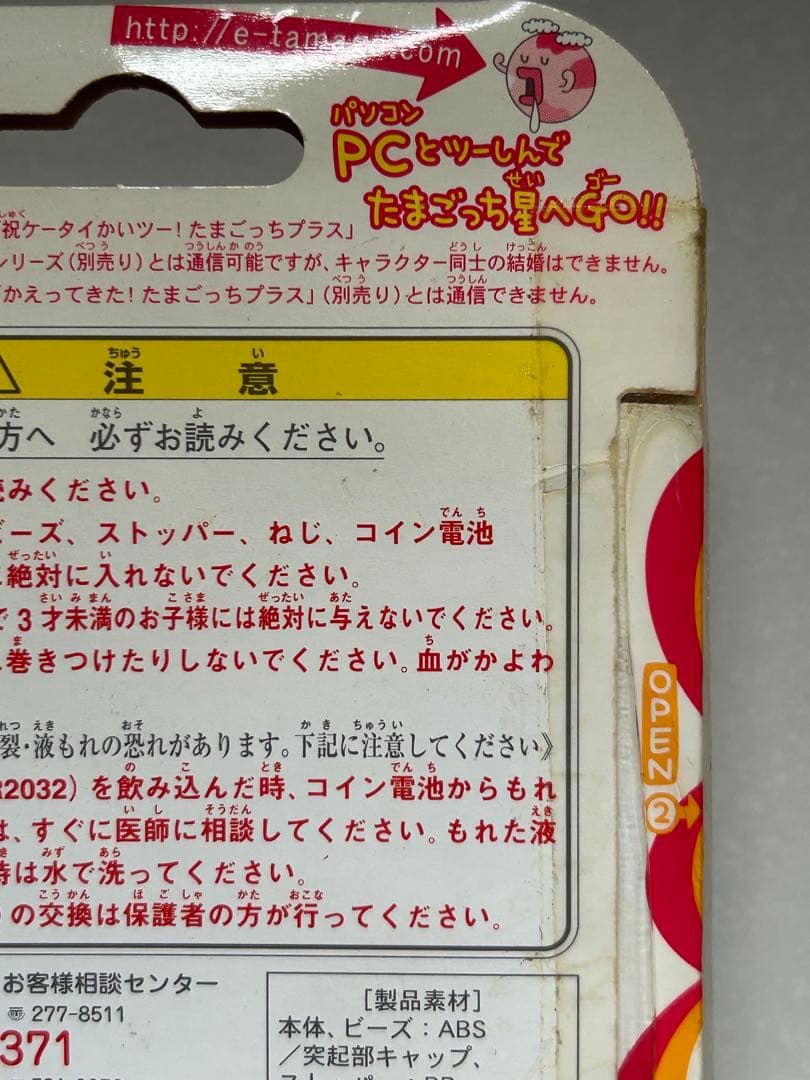 http://e-tama
com
パソコン
PCとツーしんで
たまごっち星へGO!!
祝ケータイかいツー!たまごっちプラス」
シリーズ(別売り)とは通信可能ですが、キャラクター同士の結婚はできません。
「かえってきた!たまごっちプラス」(別売り)とは通信できません。
注意
方へ 必ずお読みください。
読みください。
ビーズ、ストッパー、ねじ、コイン電池
に絶対に入れないでください。
で3才未満のお子様には絶対に与えないでください。
巻きつけたりしないでください。血がかよわ
裂・液もれの恐れがあります。下記に注意してください》
R2032)を飲み込んだ時、コイン電池からもれ
は、すぐに医師に相談してください。もれた液
時は水で洗ってください。
の交換は保護者の方が行ってください。
OPEN
2
お客様相談センター
277-8511
371
[製品素材]
本体、ビーズ:ABS
/突起部キャップ、